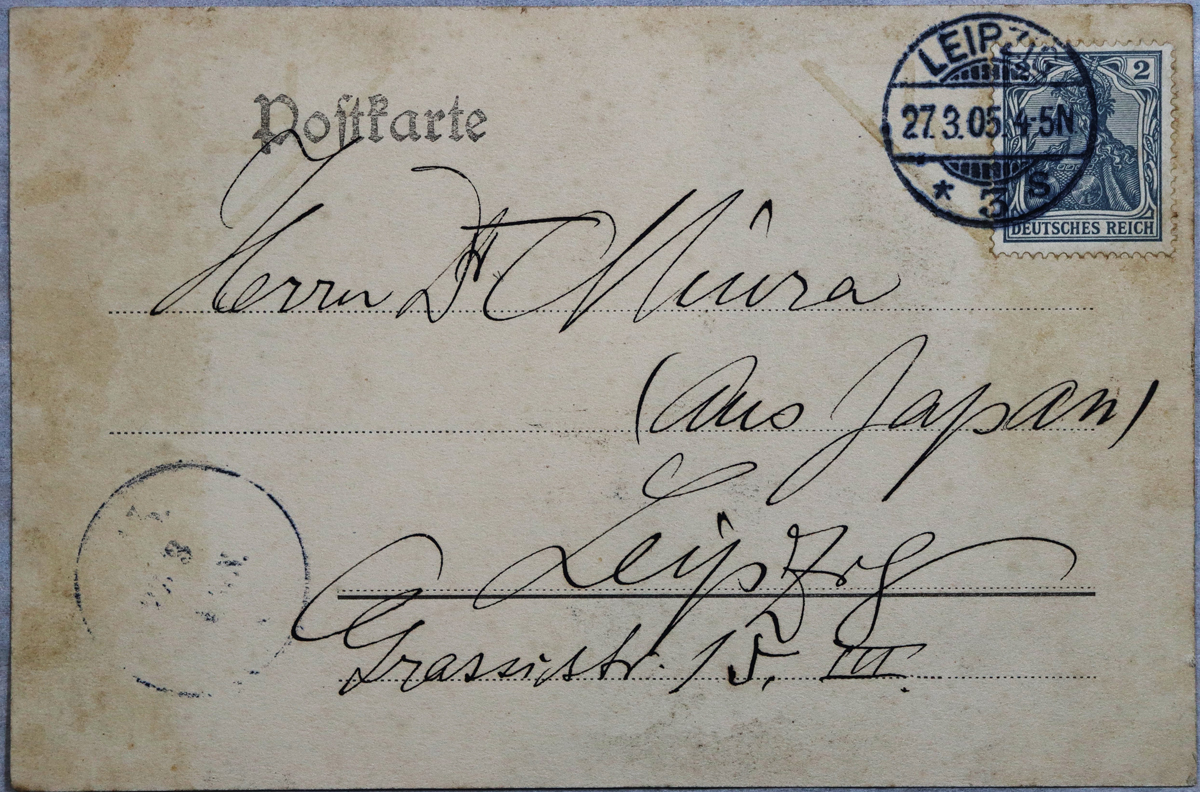 Postkarte
LEIPZIG
2
27.3.05. 4-5N.
* 3 S
2
DEUTSCHES REICH
Herrn Dr Miura
(aus Japan)
Leipzig
Grassistr. 15. III.